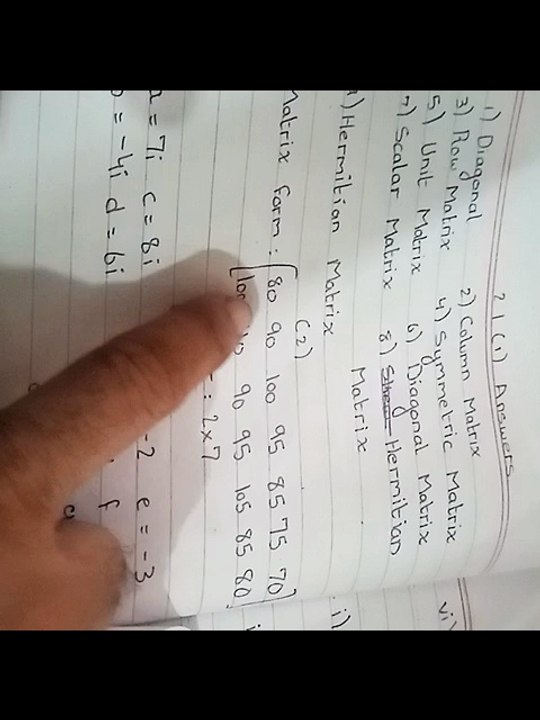 2.1 (1) Answers
1) Diagonal 2) Column Matrix
3) Row Matrix 4) Symmetric Matrix
5) Unit Matrix 6) Diagonal Matrix
7) Scalar Matrix 8) Hermitian Matrix
9) Hermitian Matrix
(2)
Matrix form: 80 90 100 95 85 75 70
100 90 95 105 85 80
: 2x7
a = 7i c = 8i -2 e = -3
= -4i d = 6i f
vi)
i)